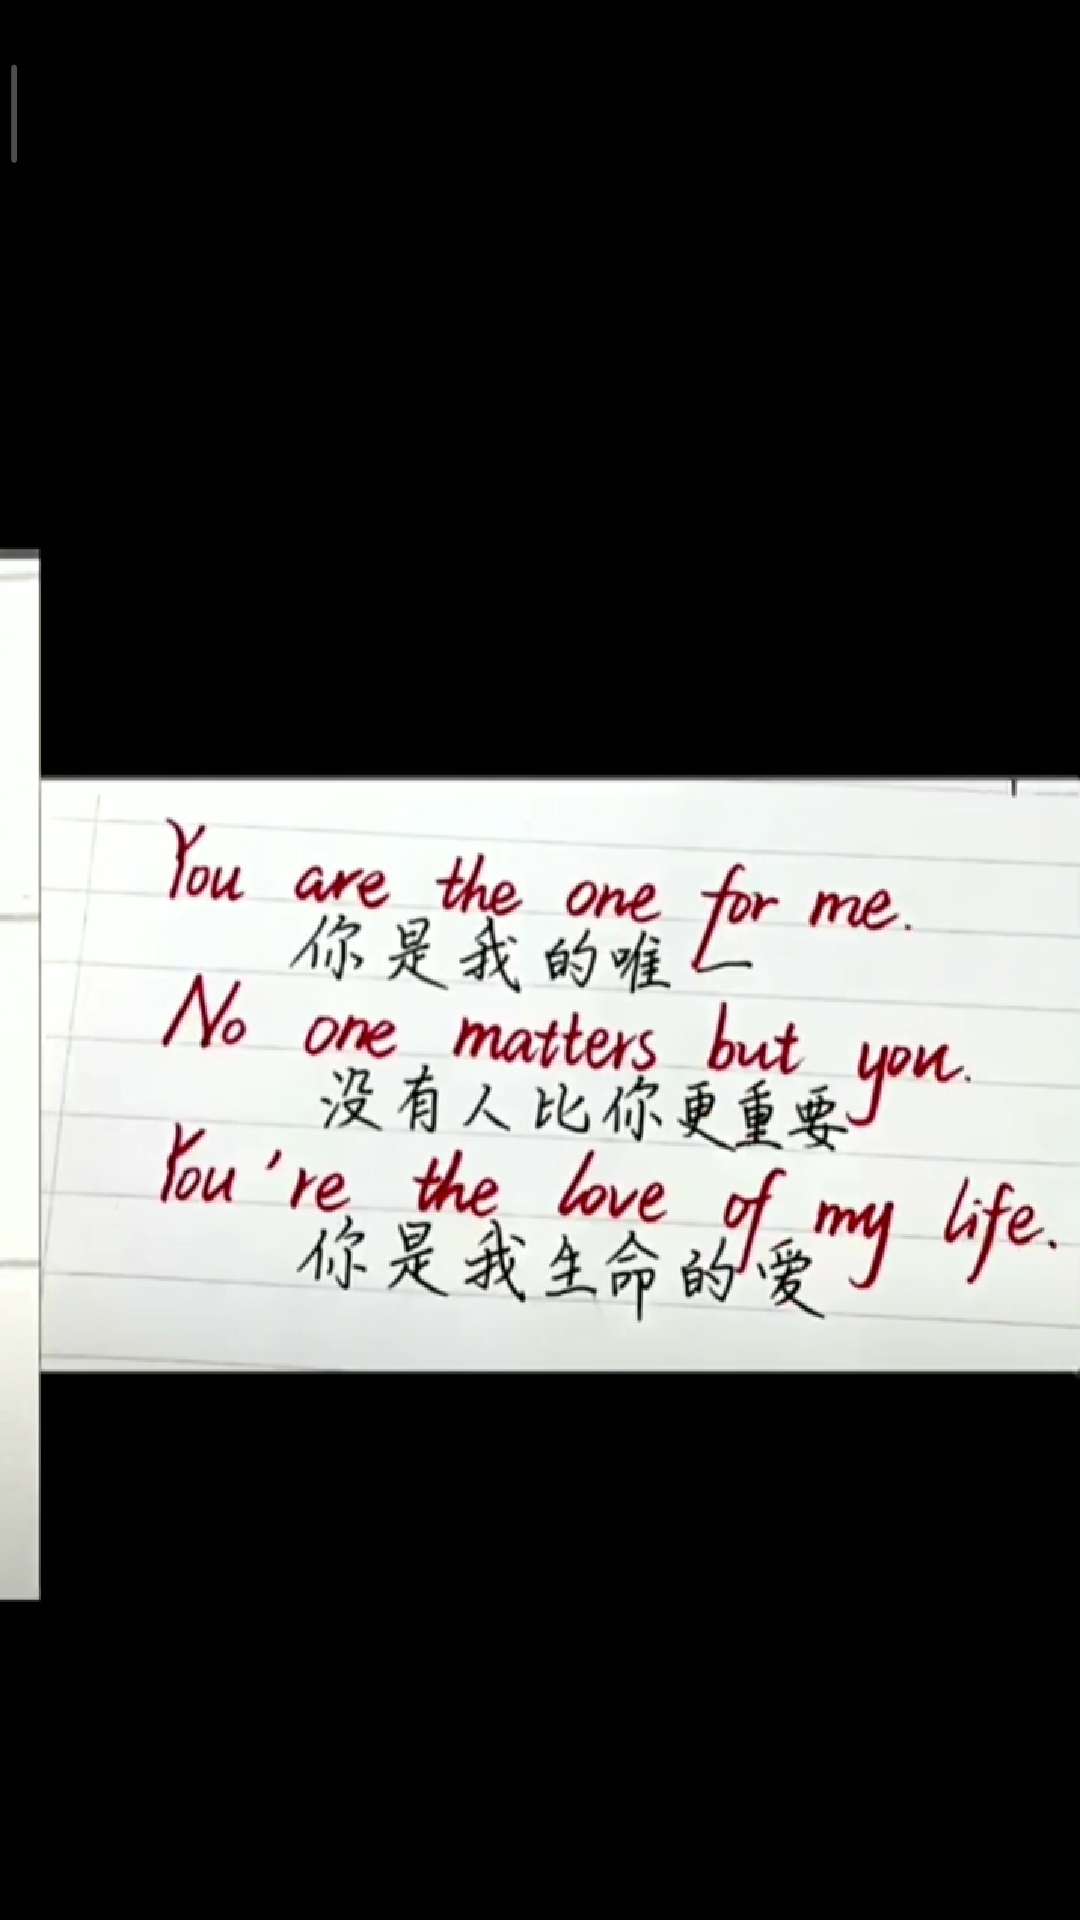 You are the one for me.
你是我的唯一
No one matters but you.
没有人比你更重要
You're the love of my life.
你是我生命的爱